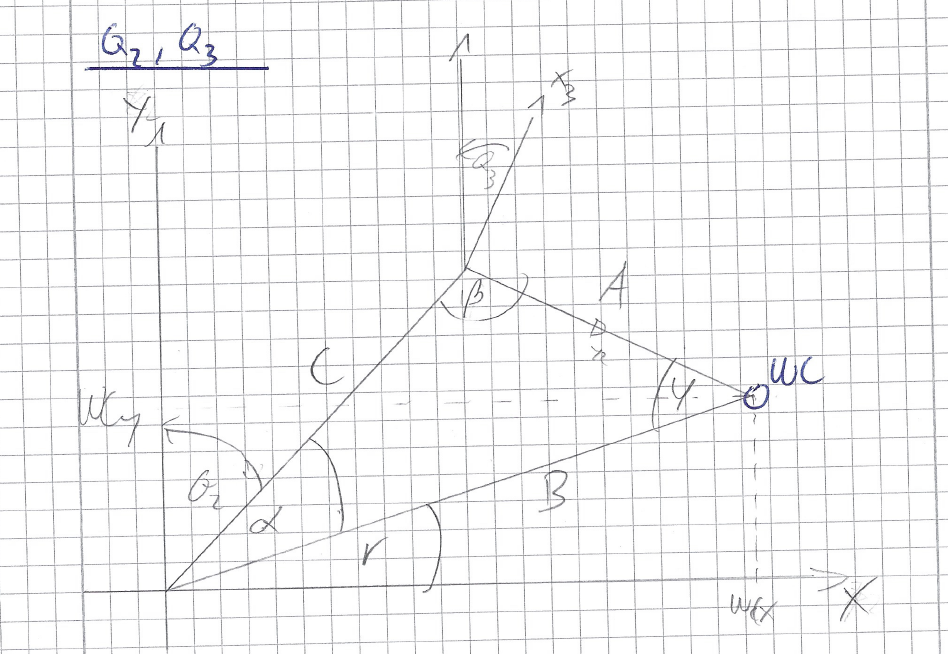 Q2, Q3
Y
X3
Q3
β
A
C
WC
WCy
γ
Q2
α
B
r
WCx
X